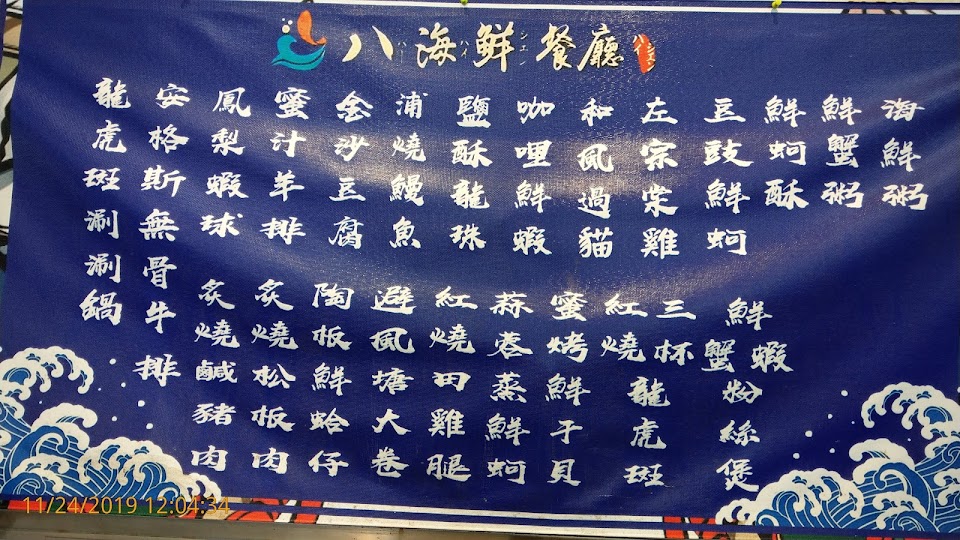 八海鮮餐廳
海鮮粥
鮮蟹粥
鮮蚵酥
豆豉鮮蚵
左宗棠雞
和風過貓
咖哩鮮蝦
鹽酥龍珠
浦燒鰻魚
金沙豆腐
蜜汁羊排
鳳梨蝦球
安格斯無骨牛排
龍虎斑涮涮鍋
鮮蝦蟹粉絲煲
三杯
紅燒
龍虎斑
蜜烤鮮干貝
蒜蓉蒸鮮蚵
紅燒田雞腿
避風塘大卷
陶板鮮蛤仔
炙燒松板肉
炙燒鹹豬肉
11/24/2019 12:04:34